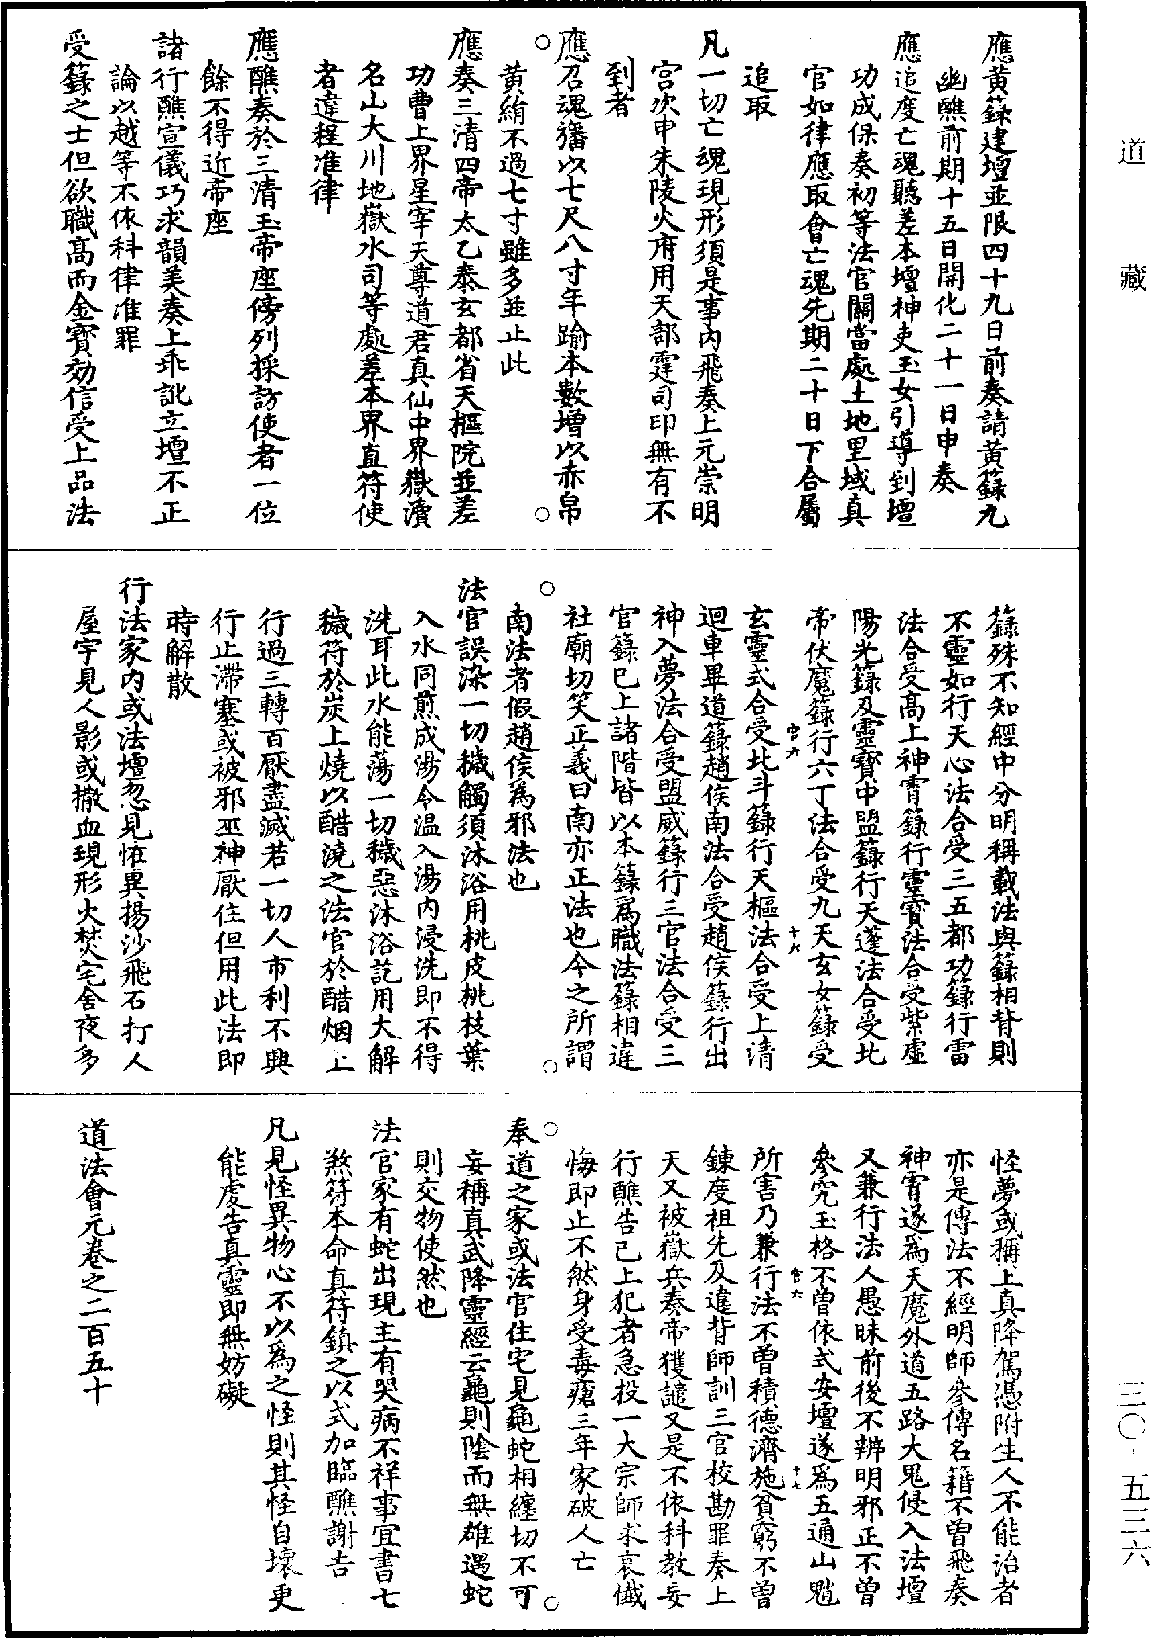 道藏
應黃籙建壇並限四十九日前奏請黃籙九
幽醮前期十五日開化二十一日申奏
應追度亡魂聽差本壇神吏玉女引導到壇
功成保奏初等法官關當處土地里域真
官如律應取會亡魂先期二十日下合屬
追取
凡一切亡魂現形須是事內飛奏上元崇明
宮次申朱陵火府用天部霆司印無有不
到者
應召魂旛以七尺八寸年踰本數增以赤帛
黃絹不過七寸雖多並止此
應奏三清四帝太乙泰玄都省天樞院並差
功曹上界星宰天尊道君真仙中界嶽瀆
名山大川地嶽水司等處差本界直符使
者違程准律
應醮奏於三清玉帝座傍列採訪使者一位
餘不得近帝座
諸行醮宣儀巧求韻美奏上乖訛立壇不正
論以越等不依科律准罪
受籙之士但欲職高而金寶効信受上品法
籙殊不知經中分明稱載法與籙相背則
不靈如行天心法合受三五都功籙行雷
法合受高上神霄籙行靈寶法合受紫虛
陽光籙及靈寶中盟籙行天蓬法合受北
帝伏魔籙行六丁法合受九天玄女籙受
玄靈式合受北斗籙行天樞法合受上清
迴車畢道籙趙侯南法合受趙侯籙行出
神入夢法合受盟威籙行三官法合受三
官籙已上諸階皆以本籙為職法籙相違
社廟切笑正義曰南亦正法也今之所謂
南法者假趙侯為邪法也
法官誤染一切穢觸須沐浴用桃皮桃枝葉
入水同煎成湯令溫入湯內浸洗即不得
洗耳此水能蕩一切穢惡沐浴訖用大解
穢符於炭上燒以醋澆之法官於醋烟上
行過三轉百厭盡滅若一切人市利不興
行止滯塞或被邪巫神厭住但用此法即
時解散
行法家內或法壇忽見怪異揚沙飛石打人
屋宇見人影或撒血現形火焚宅舍夜多
怪夢或稱上真降駕憑附生人不能治者
亦是傳法不經明師參傳名籍不曾飛奏
神霄遂為天魔外道五路大鬼侵入法壇
又兼行法人愚昧前後不辨明邪正不曾
參究玉格不曾依式安壇遂為五通山魈
所害乃兼行法不曾積德濟施貧窮不曾
鍊度祖先及違背師訓三官校勘罪奏上
天又被嶽兵奏帝獲譴又是不依科教妄
行醮告已上犯者急投一大宗師求哀懺
悔即止不然身受毒瘡三年家破人亡
奉道之家或法官住宅見龜蛇相纏切不可
妄稱真武降靈經云龜則陰而無雄遇蛇
則交物使然也
法官家有蛇出現主有哭病不祥事宜書七
煞符本命真符鎮之以式加臨醮謝吉
凡見怪異物心不以為之怪則其怪自壞更
能虔告真靈即無妨礙
道法會元卷之二百五十
三〇·五三六